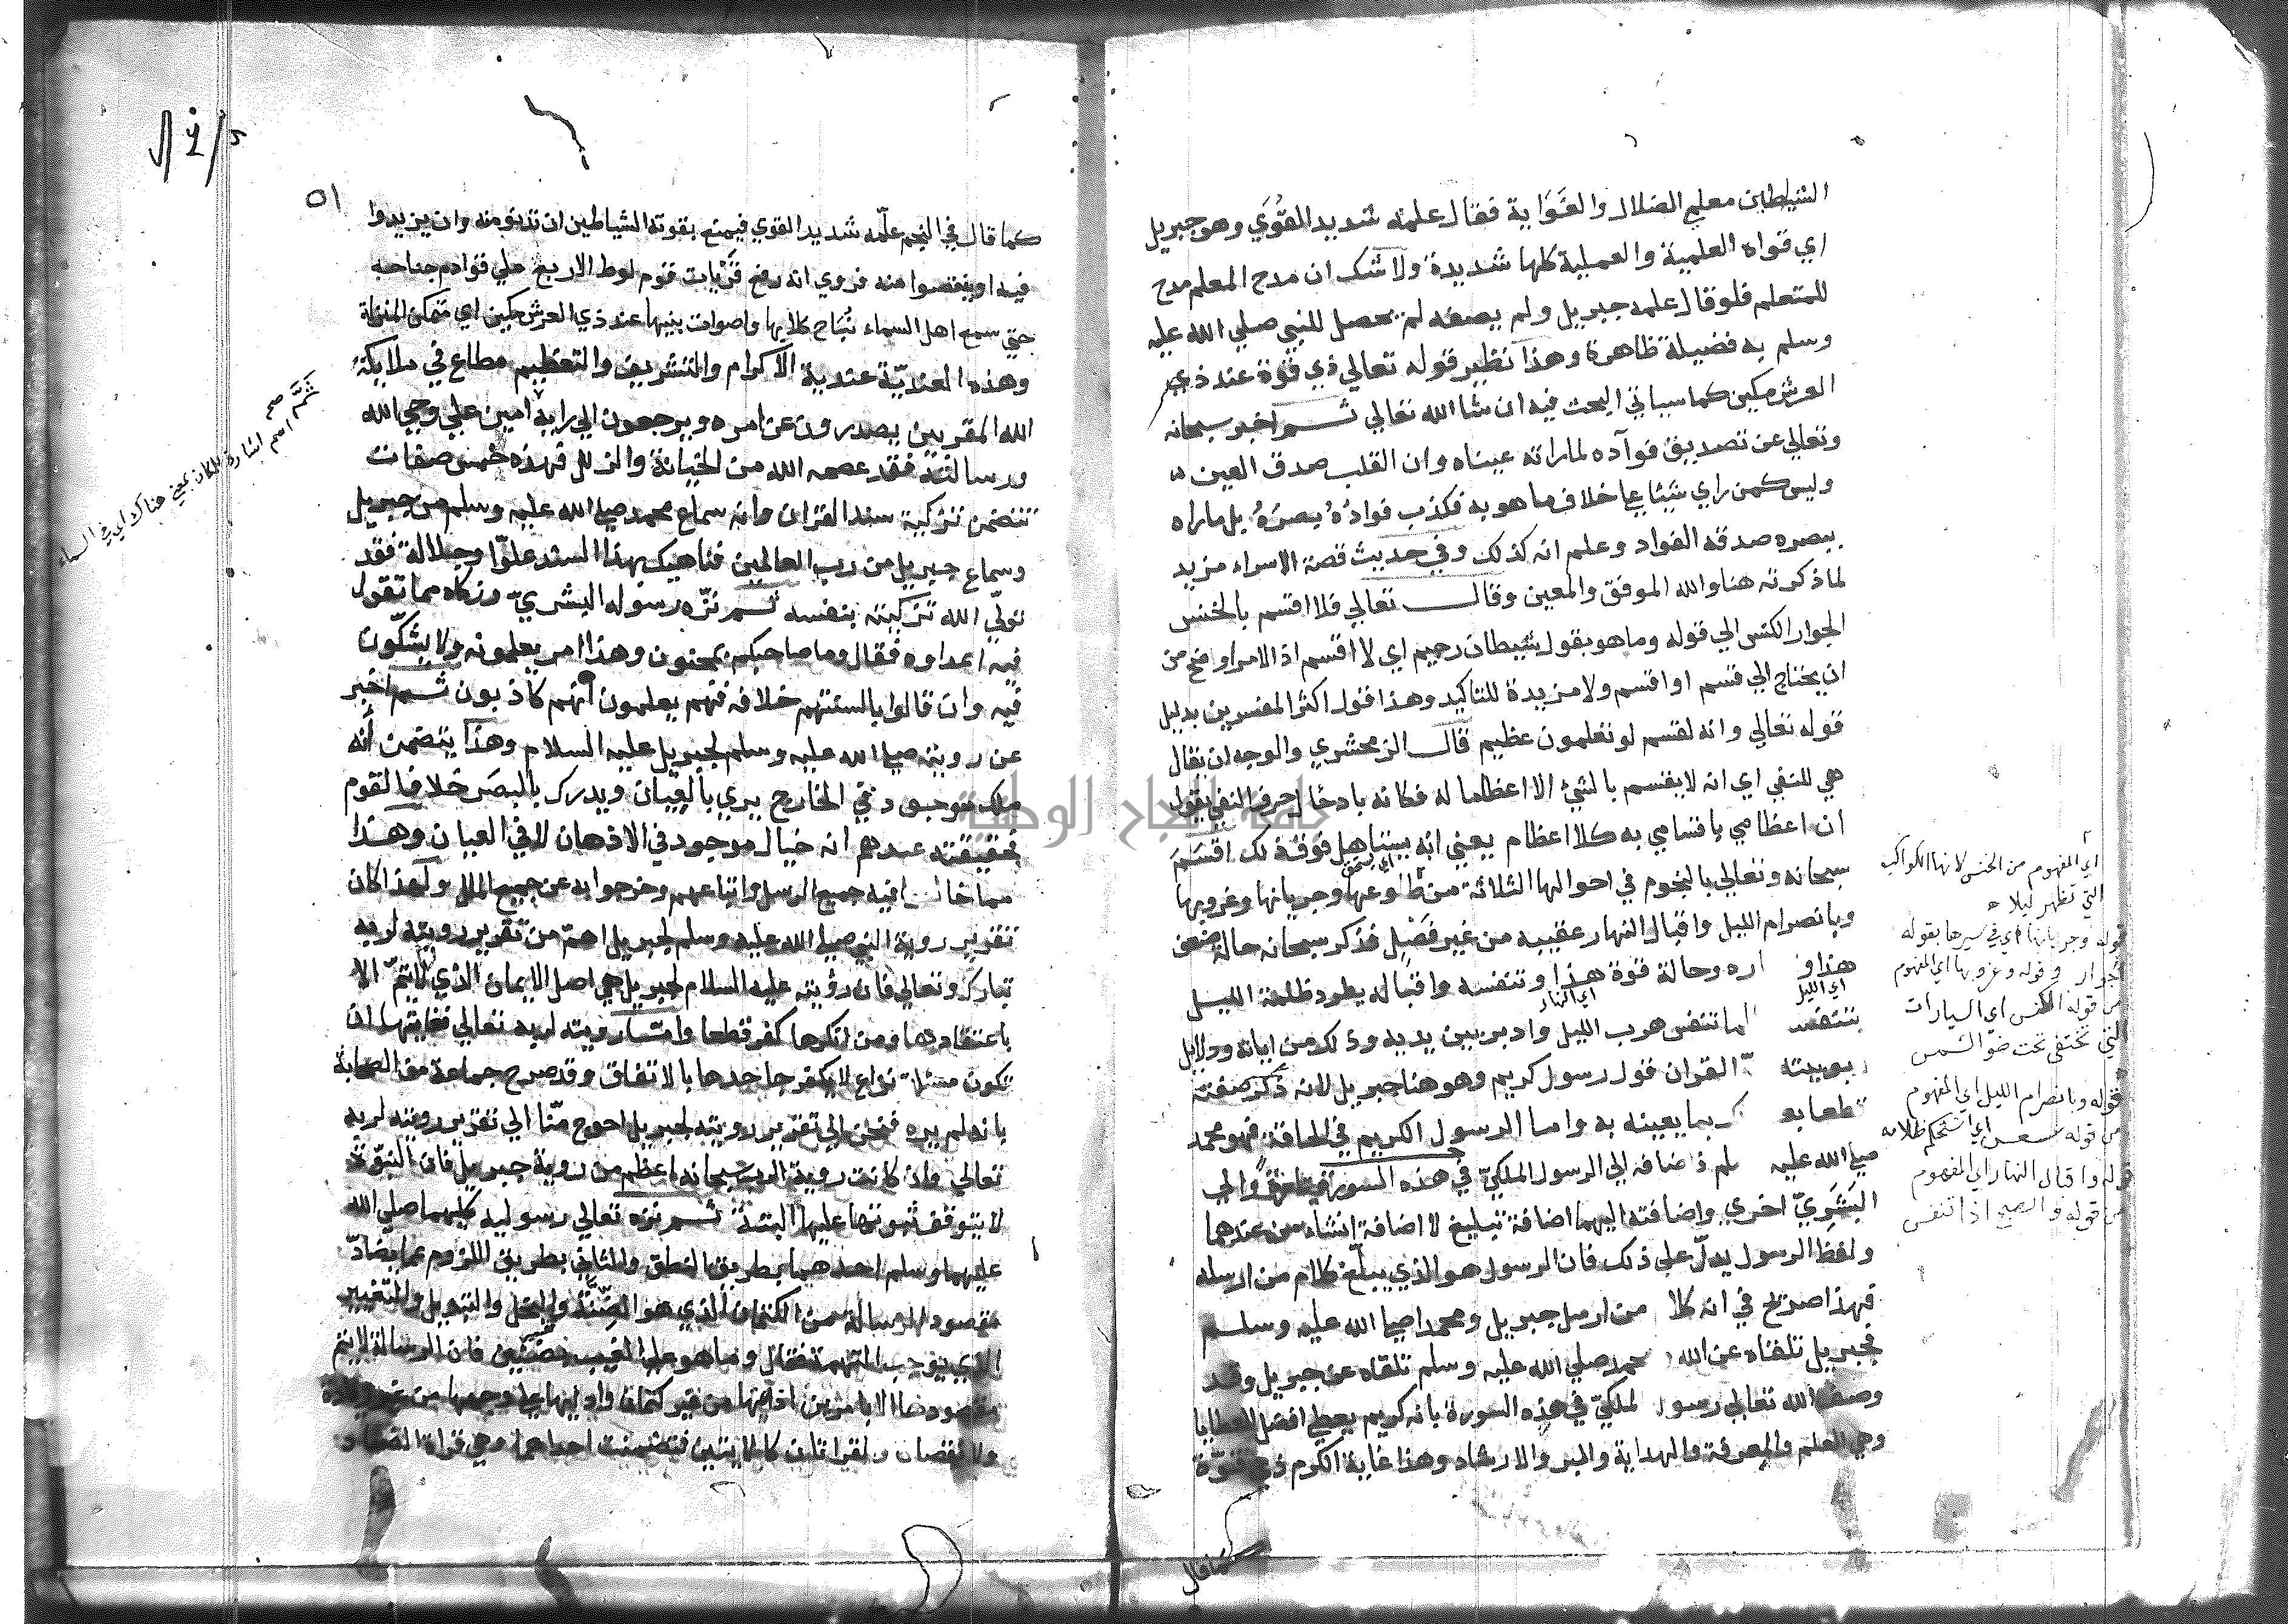 الشيطين معلم الضلال والغَوَاية فقال علمه شديد القُوَي وهو جبريل
اي قواه العلمية والعملية كلها شديدة ولا شك ان مدح المعلم مدح
للمتعلم فلو قال علمه جبريل ولم يصفه لم يحصل للنبي صلي الله عليه
وسلم به فضيلة ظاهرة وهذا نظير قوله تعالي ذي قوة عند ذي
العرش مكين كما سياتي البحث فيه ان شا الله تعالي ثم اخبر سبحانه
وتعالي عن تصديق فوآده لما راته عيناه وان القلب صدق العين
وليس كمن راي شيئا علي خلاف ما هو به فكذب فوادُهُ بصرَهُ بل ما راه
ببصره صدقه الفواد وعلم انه كذلك وفي حديث قصة الاسراء مزيد
لما ذكرته هنا والله الموفق والمعين وقال تعالي فلا اقسم بالخنس
الجوار الكنس الي قوله وما هو بقول شيطان رجيم اي لا اقسم اذ الامر اوضح من
ان يحتاج الي قسم او اقسم ولا مزيدة للتاكيد وهذا قول اكثر المفسرين بدليل
قوله تعالي وانه لقسم لو تعلمون عظيم قال الزمخشري والوجه ان يقال
هي للنفي اي انه لا يقسم بالشئ الا اعظاما له فكانه بادخال حرف النفي يقول
ان اعظامي باقسامي به كلا اعظام يعني انه يستاهل فوق ذلك اقسَمَ
اي يستحق
سبحانه وتعالي بالنجوم في احوالها الثلاثة من طلوعها وجريانها وغروبها
وبانصرام الليل واقبال النهار عقيبه من غير فَصْل فذكر سبحانه حالة ضعف
هذا و اره وحالة قوة هذا وتنفسه واقباله يطرد ظلمة الليل
اي الليل
اي النهار
بتنفسه لما تنفس هرب الليل وادبر بين يديه وذلك من اياته ودلايل
ربوبيته القران قول رسول كريم وهو هنا جبريل لانه ذكر صفته
قطعا بعد بما يعينه به واما الرسول الكريم في الحاقة فهو محمد
صلي الله عليه لم فاضافه الي الرسول الملكيّ في هذه السورة تارةً والي
البَشَرِيّ اخري واضافته اليهما اضافة تبليغ لا اضافة انشاء من عندهما
ولفظ الرسول يدلّ علي ذلك فان الرسول هو الذي يبلّغ كلام من ارسله
فهذا صريح في انه كلا من ارسل جبريل ومحمدا صلي الله عليه وسلم
فجبريل تلقناه عن الله محمد صلي الله عليه وسلم تلقاه عن جبريل وقد
وصف الله تعالي رسو لملكيّ في هذه السورة بانه كريم يعطي افضل العطايا
وهي العلم والمعرفة والهداية والبر والارشاد وهذا غاية الكرم ذي قوّة
كما قال
اي المفهوم من الخنس لانها الكواكب
التي تظهر ليلا
قوله وجريانها اي في سيرها بقوله
الجوار وقوله وغروبها اي المفهوم
من قوله الكنس اي السيارات
التي تختفي تحت ضو الشمس
قوله وبانصرام الليل اي المفهوم
من قوله عسعس اي استحكم ظلامه
قوله واقبال النهار اي المفهوم
من قوله والصبح اذا تنفس
٥١
كما قال في النجم علّمه شديد القوي فيمنع بقوته الشياطين ان تدنو منه وان يزيدوا
فيه او ينقصوا منه فروي انه رفع قَرْيات قوم لوط الاربع علي قوادم جناحه
حتي سمع اهل السماء نُبَاح كلابها واصوات بنيها عند ذي العرش مكين اي متمكن المنزلة
وهذه العنديّة عندية الاكرام والتشريف والتعظيم مطاع في ملايكة
الله المقربين يصدرون عن امره ويرجعون الي رايه امين علي وحي الله
ورسالته فقد عصمه الله من الخيانة والزلل فهذه خمس صفات
تتضمن تزكية سند القران وانه سماع محمد صلي الله عليه وسلم من جبريل
وسماع جبريل من رب العالمين فناهيك بهذا السند علوّا وجلالة فقد
تولّي الله تزكيته بنفسه ثم نزّه رسوله البشريّ وزكاه مما تقول
فيه اعداوه فقال وما صاحبكم بمجنون وهذا امر يعلمونه ولا يشكّون
فيه وان قالوا بالسنتهم خلافه فهم يعلمون انهم كاذبون ثم اخبر
عن رويته صلي الله عليه وسلم لجبريل عليه السلام وهذا يتضمن أنه
ملك موجود في الخارج يري بالعِيَان ويدرك بالبصَر خلافا لقوم
حقيقته عندهم انه خيال موجود في الاذهان لا في العيان وهذا
مما خالفوا فيه جميع الرسل واتباعهم وخرجوا به عن جميع الملل ولهذا كان
تقرير روية النبي صلي الله عليه وسلم لجبريل اهمّ من تقرير رويته لربه
تبارك وتعالي فان رؤيته عليه السلام لجبريل هي اصل الايمان الذي لا يتمّ الا
باعتقادها ومن انكرها كفر قطعا وامـا رويته لربه تعالي فغايتها ان
تكون مسئلة نزاع لا يكفر جاحدها بالاتفاق وقد صرح جماعة من الصحابة
بانه لم يره فنحن الي تقرير رويته لجبريل احوج منّا الي تقرير رويته لربه
تعالي وان كانت روية الرب سبحانه اعظم من روية جبريل فان النبوّة
لا يتوقف ثبوتها عليها البتة ثم نزه تعالي رسوليه كليهما صلي الله
عليهما وسلم احدهما بطريق النطق والثاني بطريق اللزوم عما يضادّ
مقصود الرسالة من الكتمان الذي هو الضِّنَّة والبخل والتبديل والتغيير
الذي يوجب التهمة فقال وما هو علي الغيب بضنين فان الرسالة لا يتم
مقصودها الا بامرين اداءها من غير كتمان واداءها علي وجهها من غير زيادة
ولا نقصان والقراتان كالايتين فتضمنت احداهما وهي قراة الضاد
ثَمَّ اسم اشارة للمكان بمعني هناك اي في السماء
جامعة النجاح الوطنية